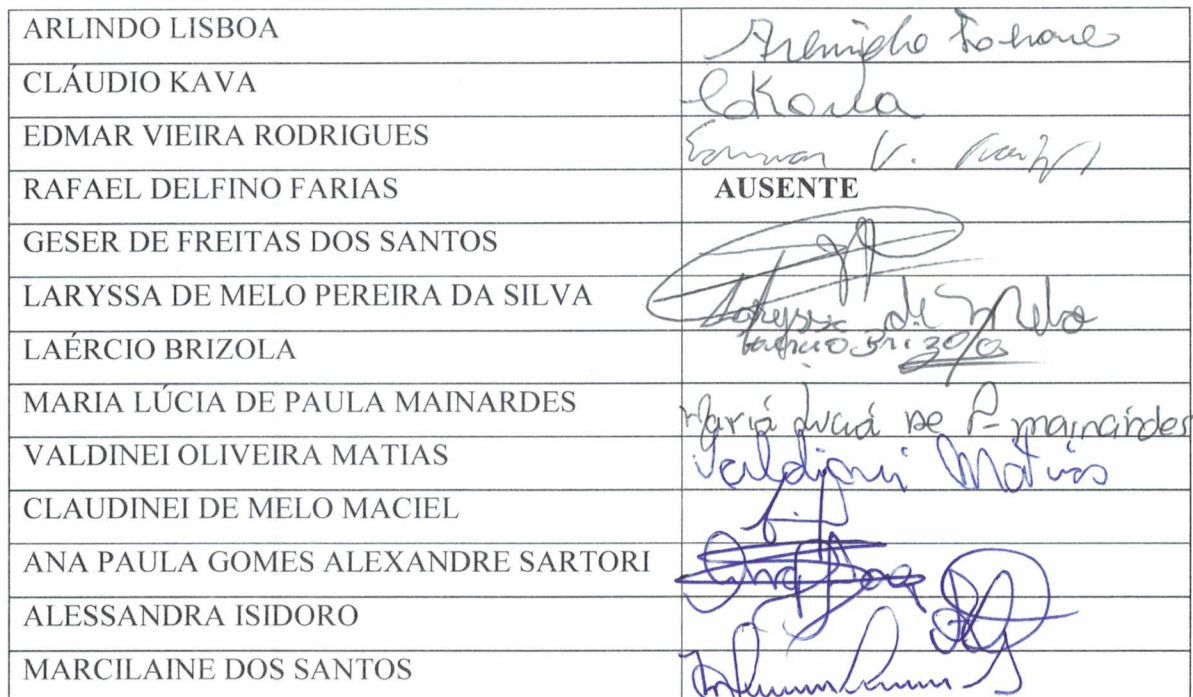 ARLINDO LISBOA
CLÁUDIO KAVA
EDMAR VIEIRA RODRIGUES
RAFAEL DELFINO FARIAS AUSENTE
GESER DE FREITAS DOS SANTOS
LARYSSA DE MELO PEREIRA DA SILVA Laryssa de Melo
LAÉRCIO BRIZOLA Laércio Brizola
MARIA LÚCIA DE PAULA MAINARDES Maria Lucia De P. mainardes
VALDINEI OLIVEIRA MATIAS Valdinei Matias
CLAUDINEI DE MELO MACIEL
ANA PAULA GOMES ALEXANDRE SARTORI
ALESSANDRA ISIDORO
MARCILAINE DOS SANTOS